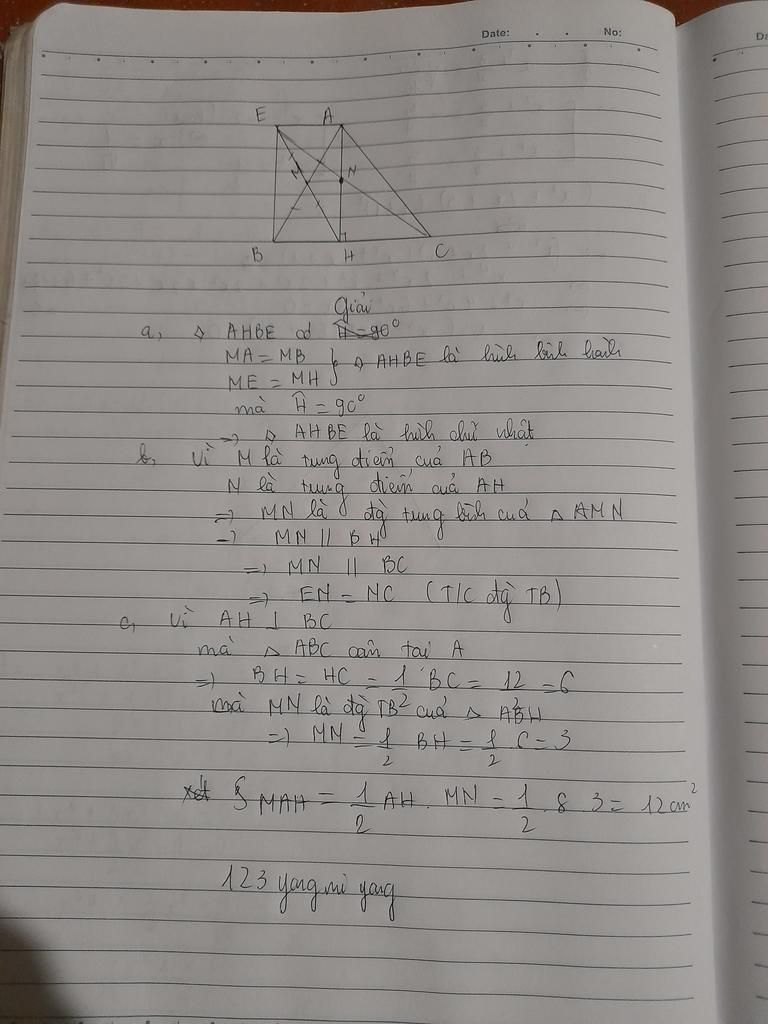 Date: . . No:
E A
M N
B H C
Giải
a, ◊ AHBE có Ĥ = 90°
MA = MB } ◊ AHBE là hình bình hành
ME = MH
mà Ĥ = 90°
=> ◊ AHBE là hình chữ nhật
b, Vì M là trung điểm cuả AB
N là trung điểm cuả AH
=> MN là đg trung bình cuả △ AMN
=> MN // BH
=> MN // BC
=> EN = NC (T/C đg TB)
c, Vì AH ⊥ BC
mà △ ABC cân tại A
=> BH = HC = 1/2 BC = 12/2 = 6
mà MN là đg TB cuả △ ABH
=> MN = 1/2 BH = 1/2 6 = 3
xét S MAH = 1/2 AH . MN = 1/2 . 8 3 = 12 cm²
123 yang mi yang